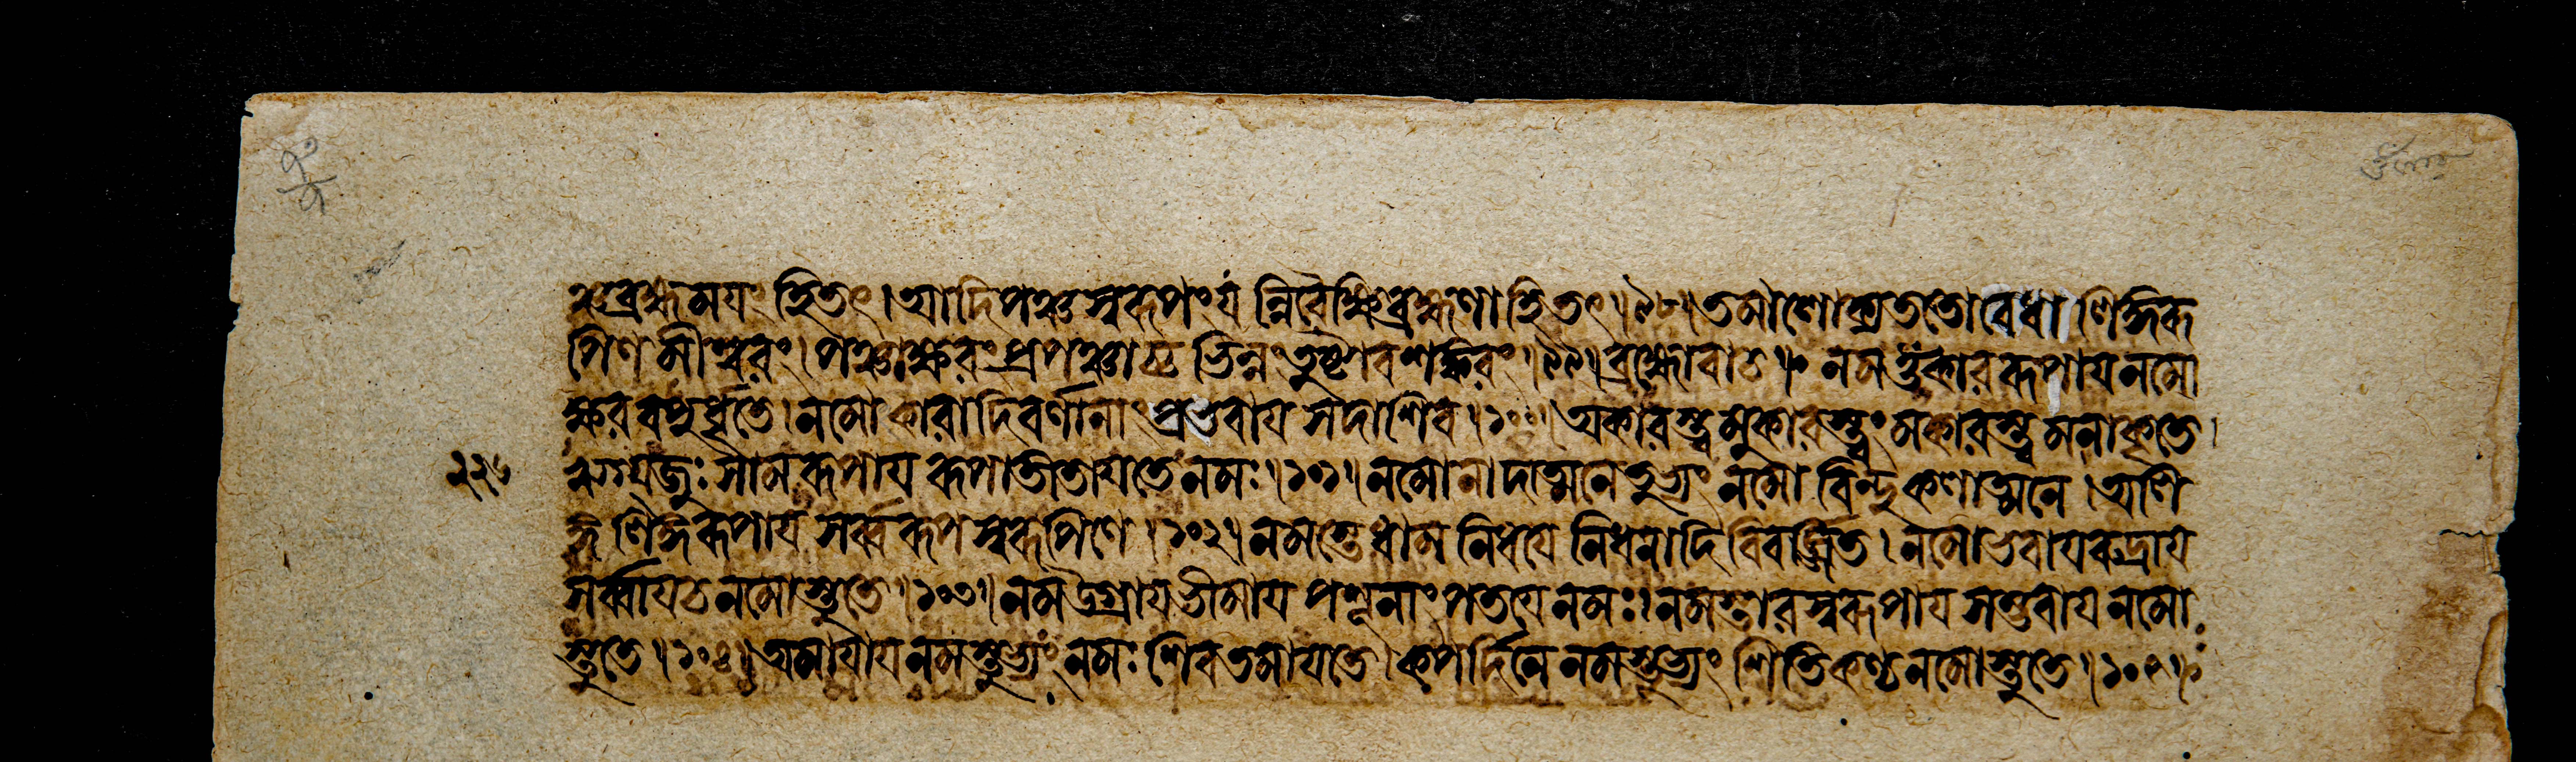 ঞ্চব্রহ্মময়ং হিতৎ। আদিপঞ্চস্বরূপং যন্নিবৈঞ্চিব্রহ্মণাহিতৎ॥৯৮॥ তমীশোক্যততোবেধা লিঙ্গিরূ
পিণমীশ্বরং। পঞ্চাক্ষরং প্রপঞ্চাচ্চ ভিন্নং তুষ্টাবশঙ্করং॥৯৯॥ ব্রহ্মোবাচ॥ নমস্তুঁকাররূপায় নমো
ক্ষরবপুর্ধৃতে। নমোকারাদিবর্ণানাং প্রভবায় সদাশিব॥১০০॥ অকারস্ত্বমুকারস্ত্বং মকারস্ত্বমনাকৃতে।
২২৬ ঋগ্যজুঃ সামরূপায় রূপাতীতায়তে নমঃ॥১০১॥ নমোনাদাত্মনে তুভ্যং নমো বিন্দুকলাত্মনে। অলি
ঙ্গলিঙ্গরূপায় সর্ব্বরূপস্বরূপিণে॥১০২॥ নমস্তে ধাম নিধয়ে নিধনাদি বিবর্জ্জিত। নমোভবায়রুদ্রায়
সর্ব্বায়চ নমোস্তুতে॥১০৩॥ নমউগ্রায়ভীমায় পশূনাং পতয়ে নমঃ। নমস্তারস্বরূপায় সম্ভবায় নমো
স্তুতে॥১০৪॥ অমায়ায় নমস্তুভ্যং নমঃ শিবতমায়তে। কপর্দ্দিনে নমস্তুভ্যং শিতিকণ্ঠ নমোস্তুতে॥১০৫॥